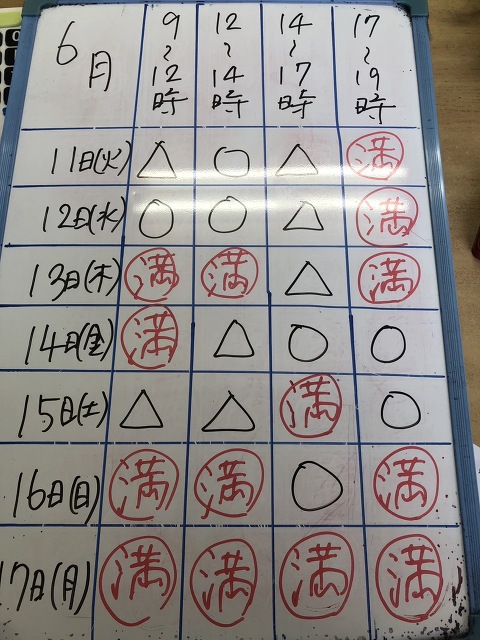 6月 9~12時 12~14時 14~17時 17~19時
11日(火) △ ○ △ 満
12日(水) ○ ○ △ 満
13日(木) 満 満 △ 満
14日(金) 満 △ ○ ○
15日(土) △ △ 満 ○
16日(日) 満 満 ○ 満
17日(月) 満 満 満 満